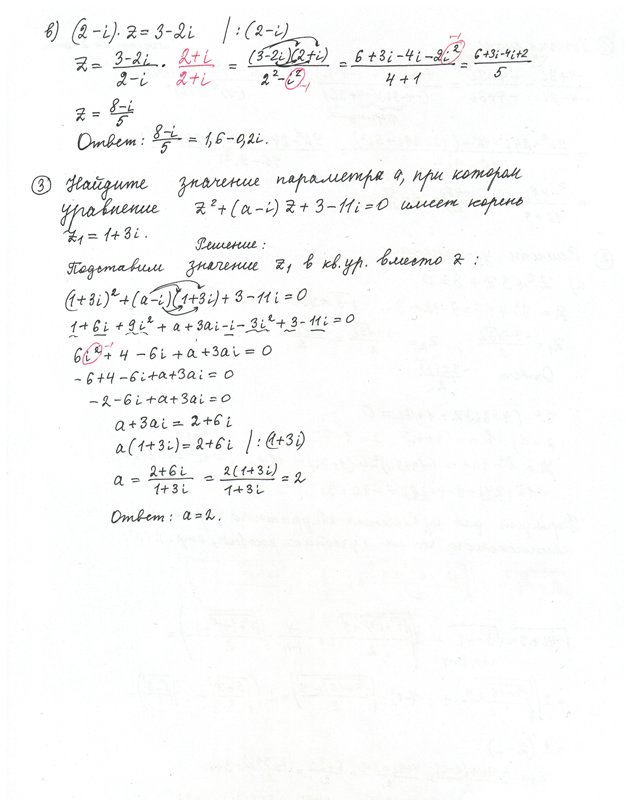 в) (2-i)·z = 3-2i |:(2-i)
z = (3-2i)/(2-i) · (2+i)/(2+i) = ((3-2i)(2+i))/(2²-i²) -1 = (6+3i-4i-2i²)/(4+1) -1 = (6+3i-4i+2)/5
z = (8-i)/5
Ответ: (8-i)/5 = 1,6-0,2i.
③ Найдите значение параметра а, при котором
уравнение z²+(a-i)z+3-11i=0 имеет корень
z₁=1+3i.
Решение:
Подставим значение z₁ в кв.ур. вместо z:
(1+3i)²+(a-i)(1+3i)+3-11i=0
1+6i+9i²+a+3ai-i-3i²+3-11i=0
6i² -1 +4-6i+a+3ai=0
-6+4-6i+a+3ai=0
-2-6i+a+3ai=0
a+3ai=2+6i
a(1+3i)=2+6i |:(1+3i)
a = (2+6i)/(1+3i) = (2(1+3i))/(1+3i) = 2
Ответ: a=2.